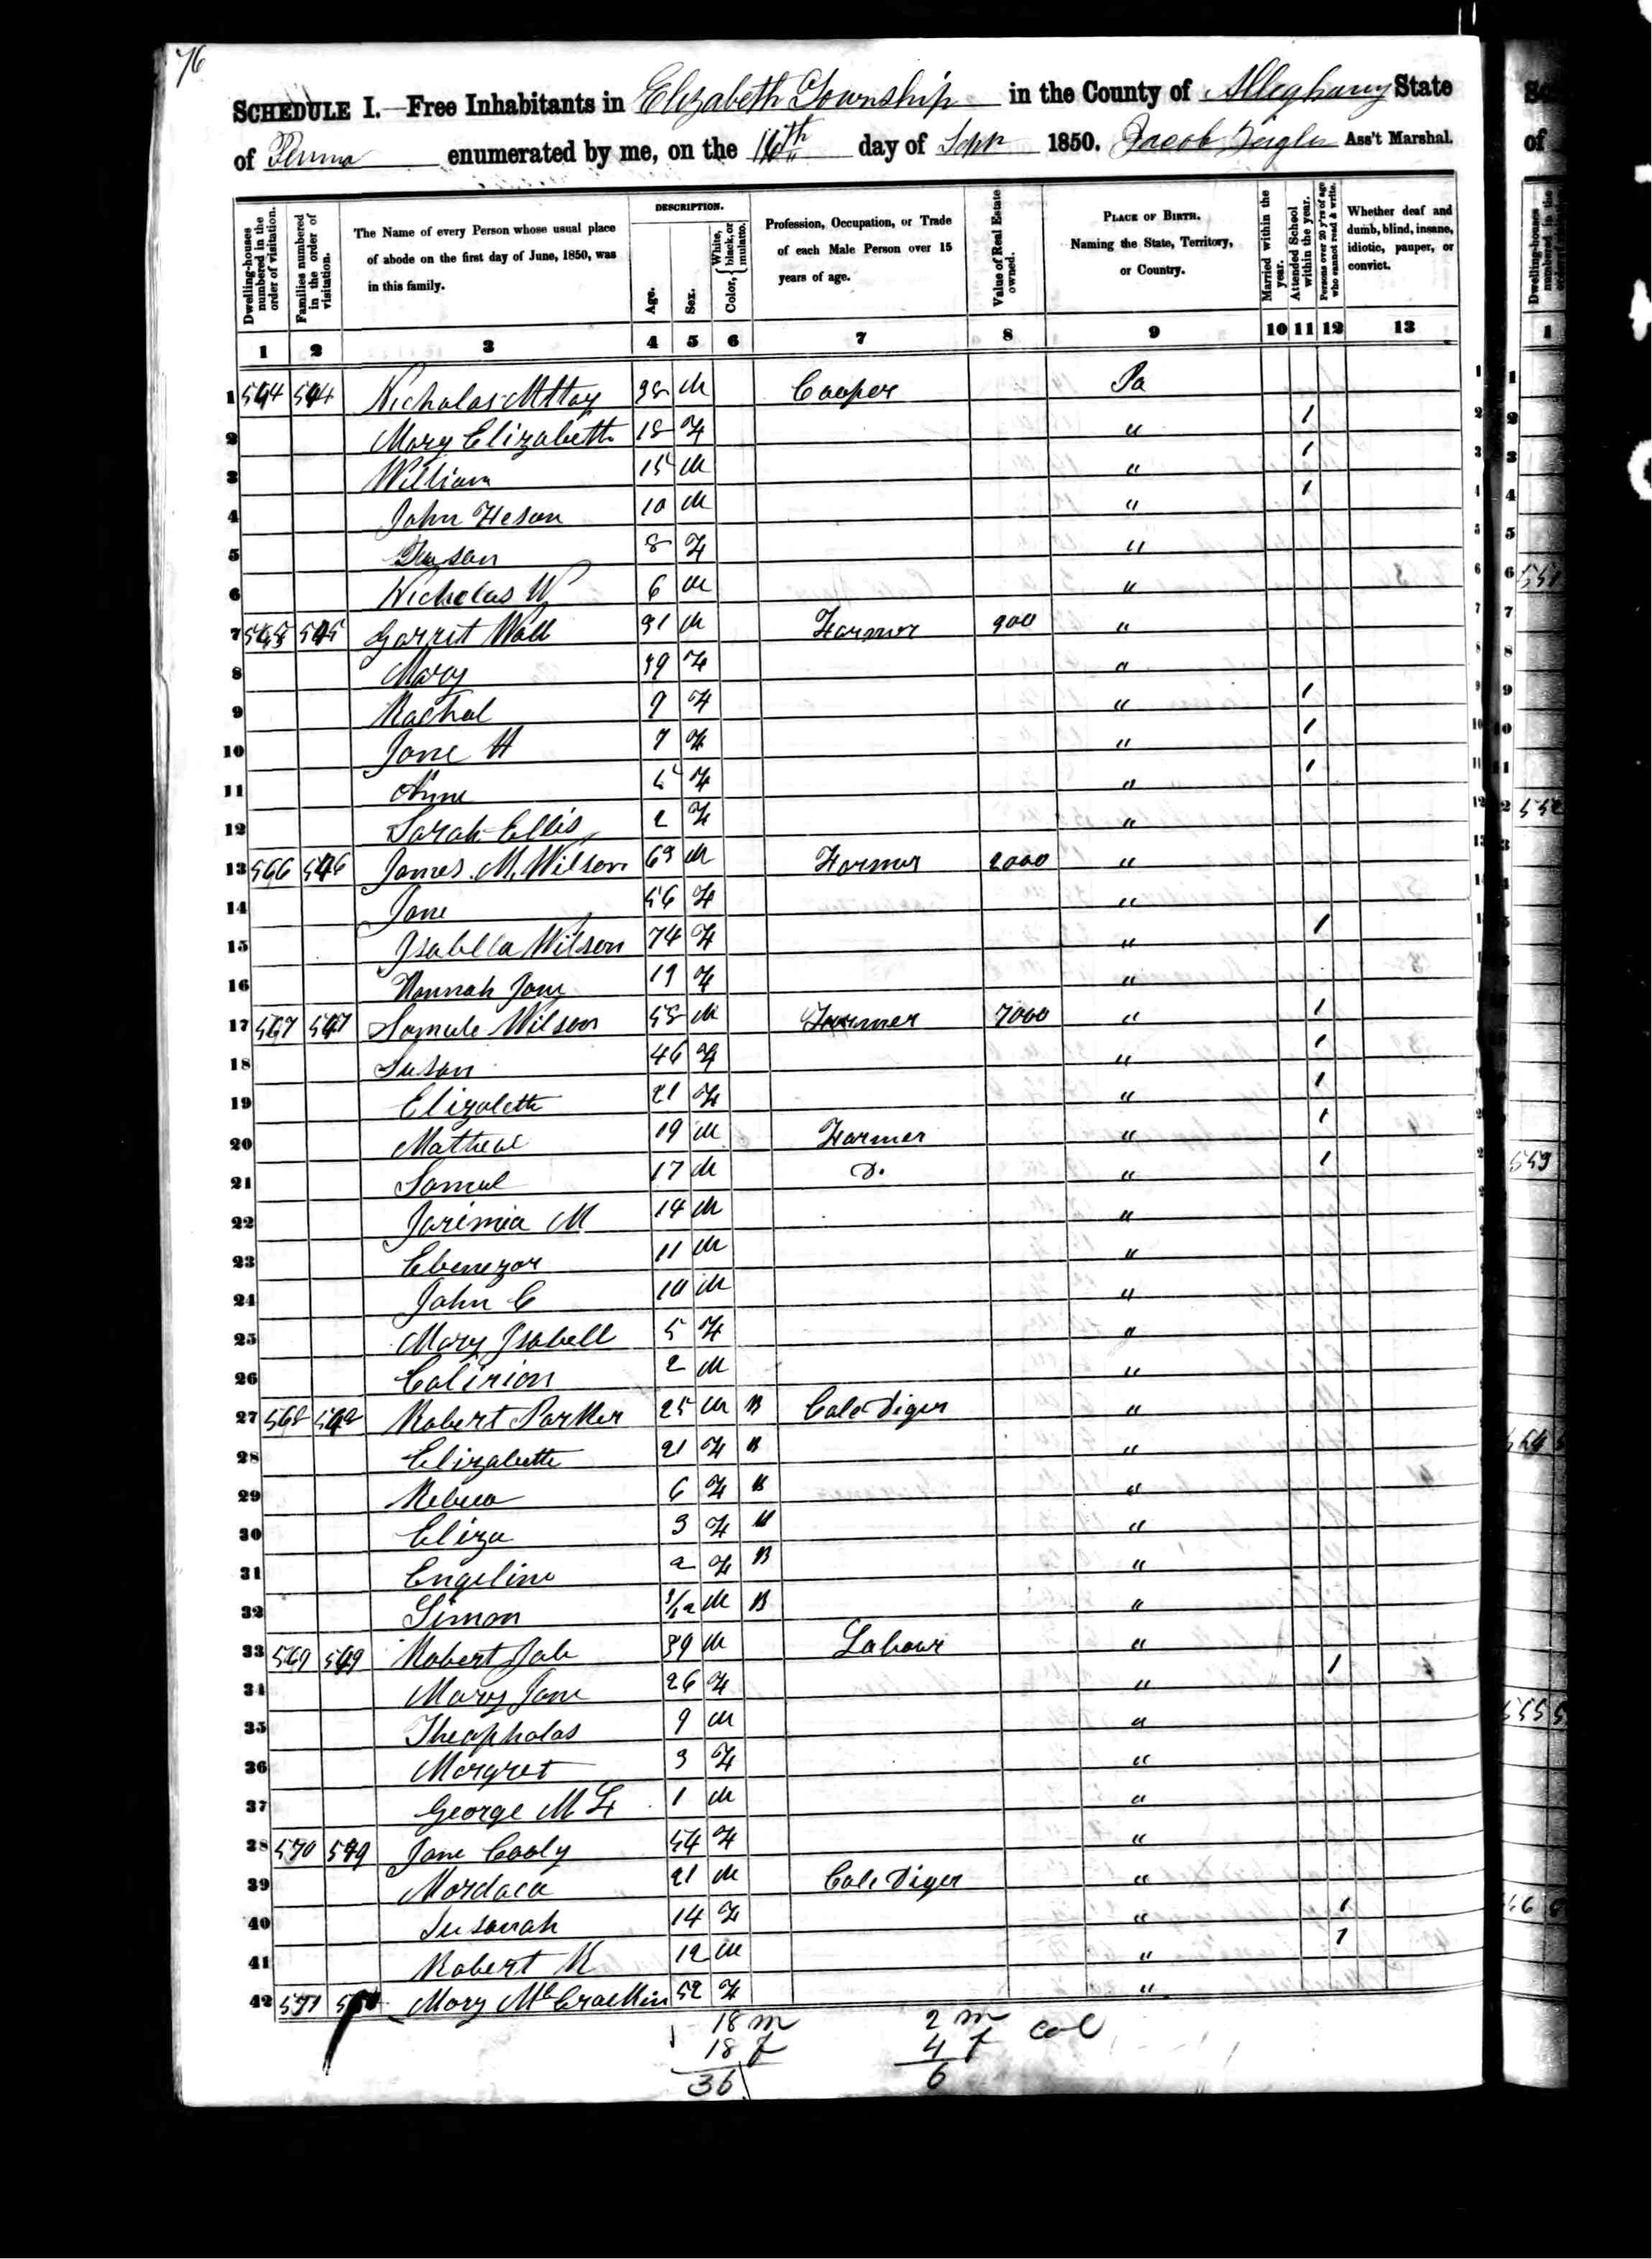 76
SCHEDULE I.—Free Inhabitants in Elizabeth Township in the County of Alleghany State
of Penna enumerated by me, on the 16th day of Sept 1850. Jacob Zeigler Ass't Marshal.
Dwelling-houses numbered in the order of visitation.
Families numbered in the order of visitation.
The Name of every Person whose usual place of abode on the first day of June, 1850, was in this family.
DESCRIPTION.
Age.
Sex.
Color, { White, black, or mulatto.
Profession, Occupation, or Trade of each Male Person over 15 years of age.
Value of Real Estate owned.
PLACE OF BIRTH. Naming the State, Territory, or Country.
Married within the year.
Attended School within the year.
Persons over 20 y'rs of age who cannot read & write.
Whether deaf and dumb, blind, insane, idiotic, pauper, or convict.
1 2 3 4 5 6 7 8 9 10 11 12 13
1 Nicholas M 38 M Cooper Pa
2 Mary Elizabeth 18 F " 1
3 William 15 M " 1
4 John 10 M " 1
5 Susan 8 F "
6 Nicholas W 6 M "
7 545 Garret Wall 31 M Farmer 900 "
8 Mary 39 F "
9 Rachal 9 F " 1
10 Jane H 7 F " 1
11 Anne 5 F " 1
12 Sarah Ellis 2 F "
13 566 546 James M. Wilson 63 M Farmer 2000 "
14 Jane 56 F "
15 Isabella Wilson 74 F " 1
16 Hannah Jane 19 F "
17 567 547 Samule Wilson 58 M Farmer 7000 " 1
18 Susan 46 F " 1
19 Elizabeth 21 F " 1
20 Mathew 19 M Farmer " 1
21 Samul 17 M Do. " 1
22 Jarimia M 14 M "
23 Ebenezar 11 M "
24 John C 10 M "
25 Mary Isabell 5 F "
26 2 M "
27 568 548 Robert Parker 25 M B Cole Diger "
28 Elizabeth 21 F B "
29 Rebeca 6 F B "
30 Eliza 3 F B "
31 Engeline 2 F B "
32 Simon 3/12 M B "
33 569 549 Robert 39 M Labour "
34 Mary Jane 26 F " 1
35 Theapholas 9 M "
36 Margret 3 F "
37 George M F 1 M "
38 570 549 Jane Cooly 54 F "
39 Mordaca 21 M Cole Diger "
40 Susanah 14 F " 1
41 Robert K 12 M " 1
42 571 Mary McCrackin 52 F "
18 m 2 m col
18 f 4 f
36 6